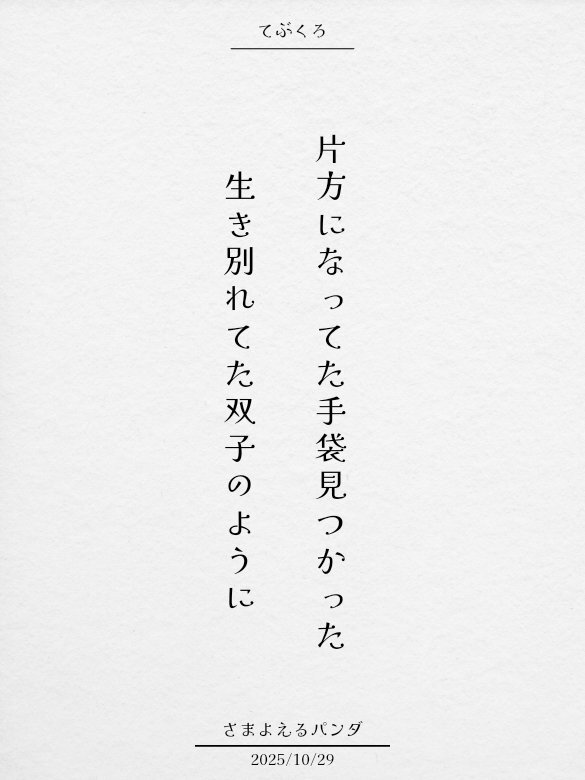 てぶくろ
片方になってた手袋見つかった
生き別れてた双子のように
さまよえるパンダ
2025/10/29